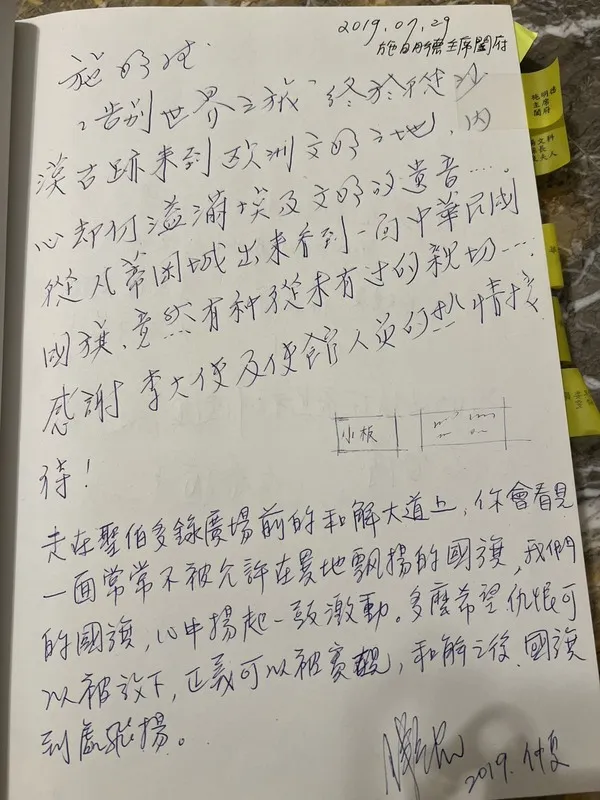 2019.07.29
施明德主席閤府
施明德
"告別世界之旅"終於從沙
漠古跡來到欧洲文明之地,內
心却仍溢滿埃及文明的遺音....
從凡蒂岡城出來看到一面中華民國
國旗、竟然有种從未有过的親切....
感謝李大使及使館人員的热情接
待!
小板
走在聖伯多錄廣場前的和解大道上,你會看見
一面常常不被允許在異地飄揚的國旗,我們
的國旗,心中揚起一股激動。多麼希望仇恨可
以被放下,正義可以被實現,和解之後,國旗
到處飛揚。
2019.仲夏
施明德
主席
閤府
夫人